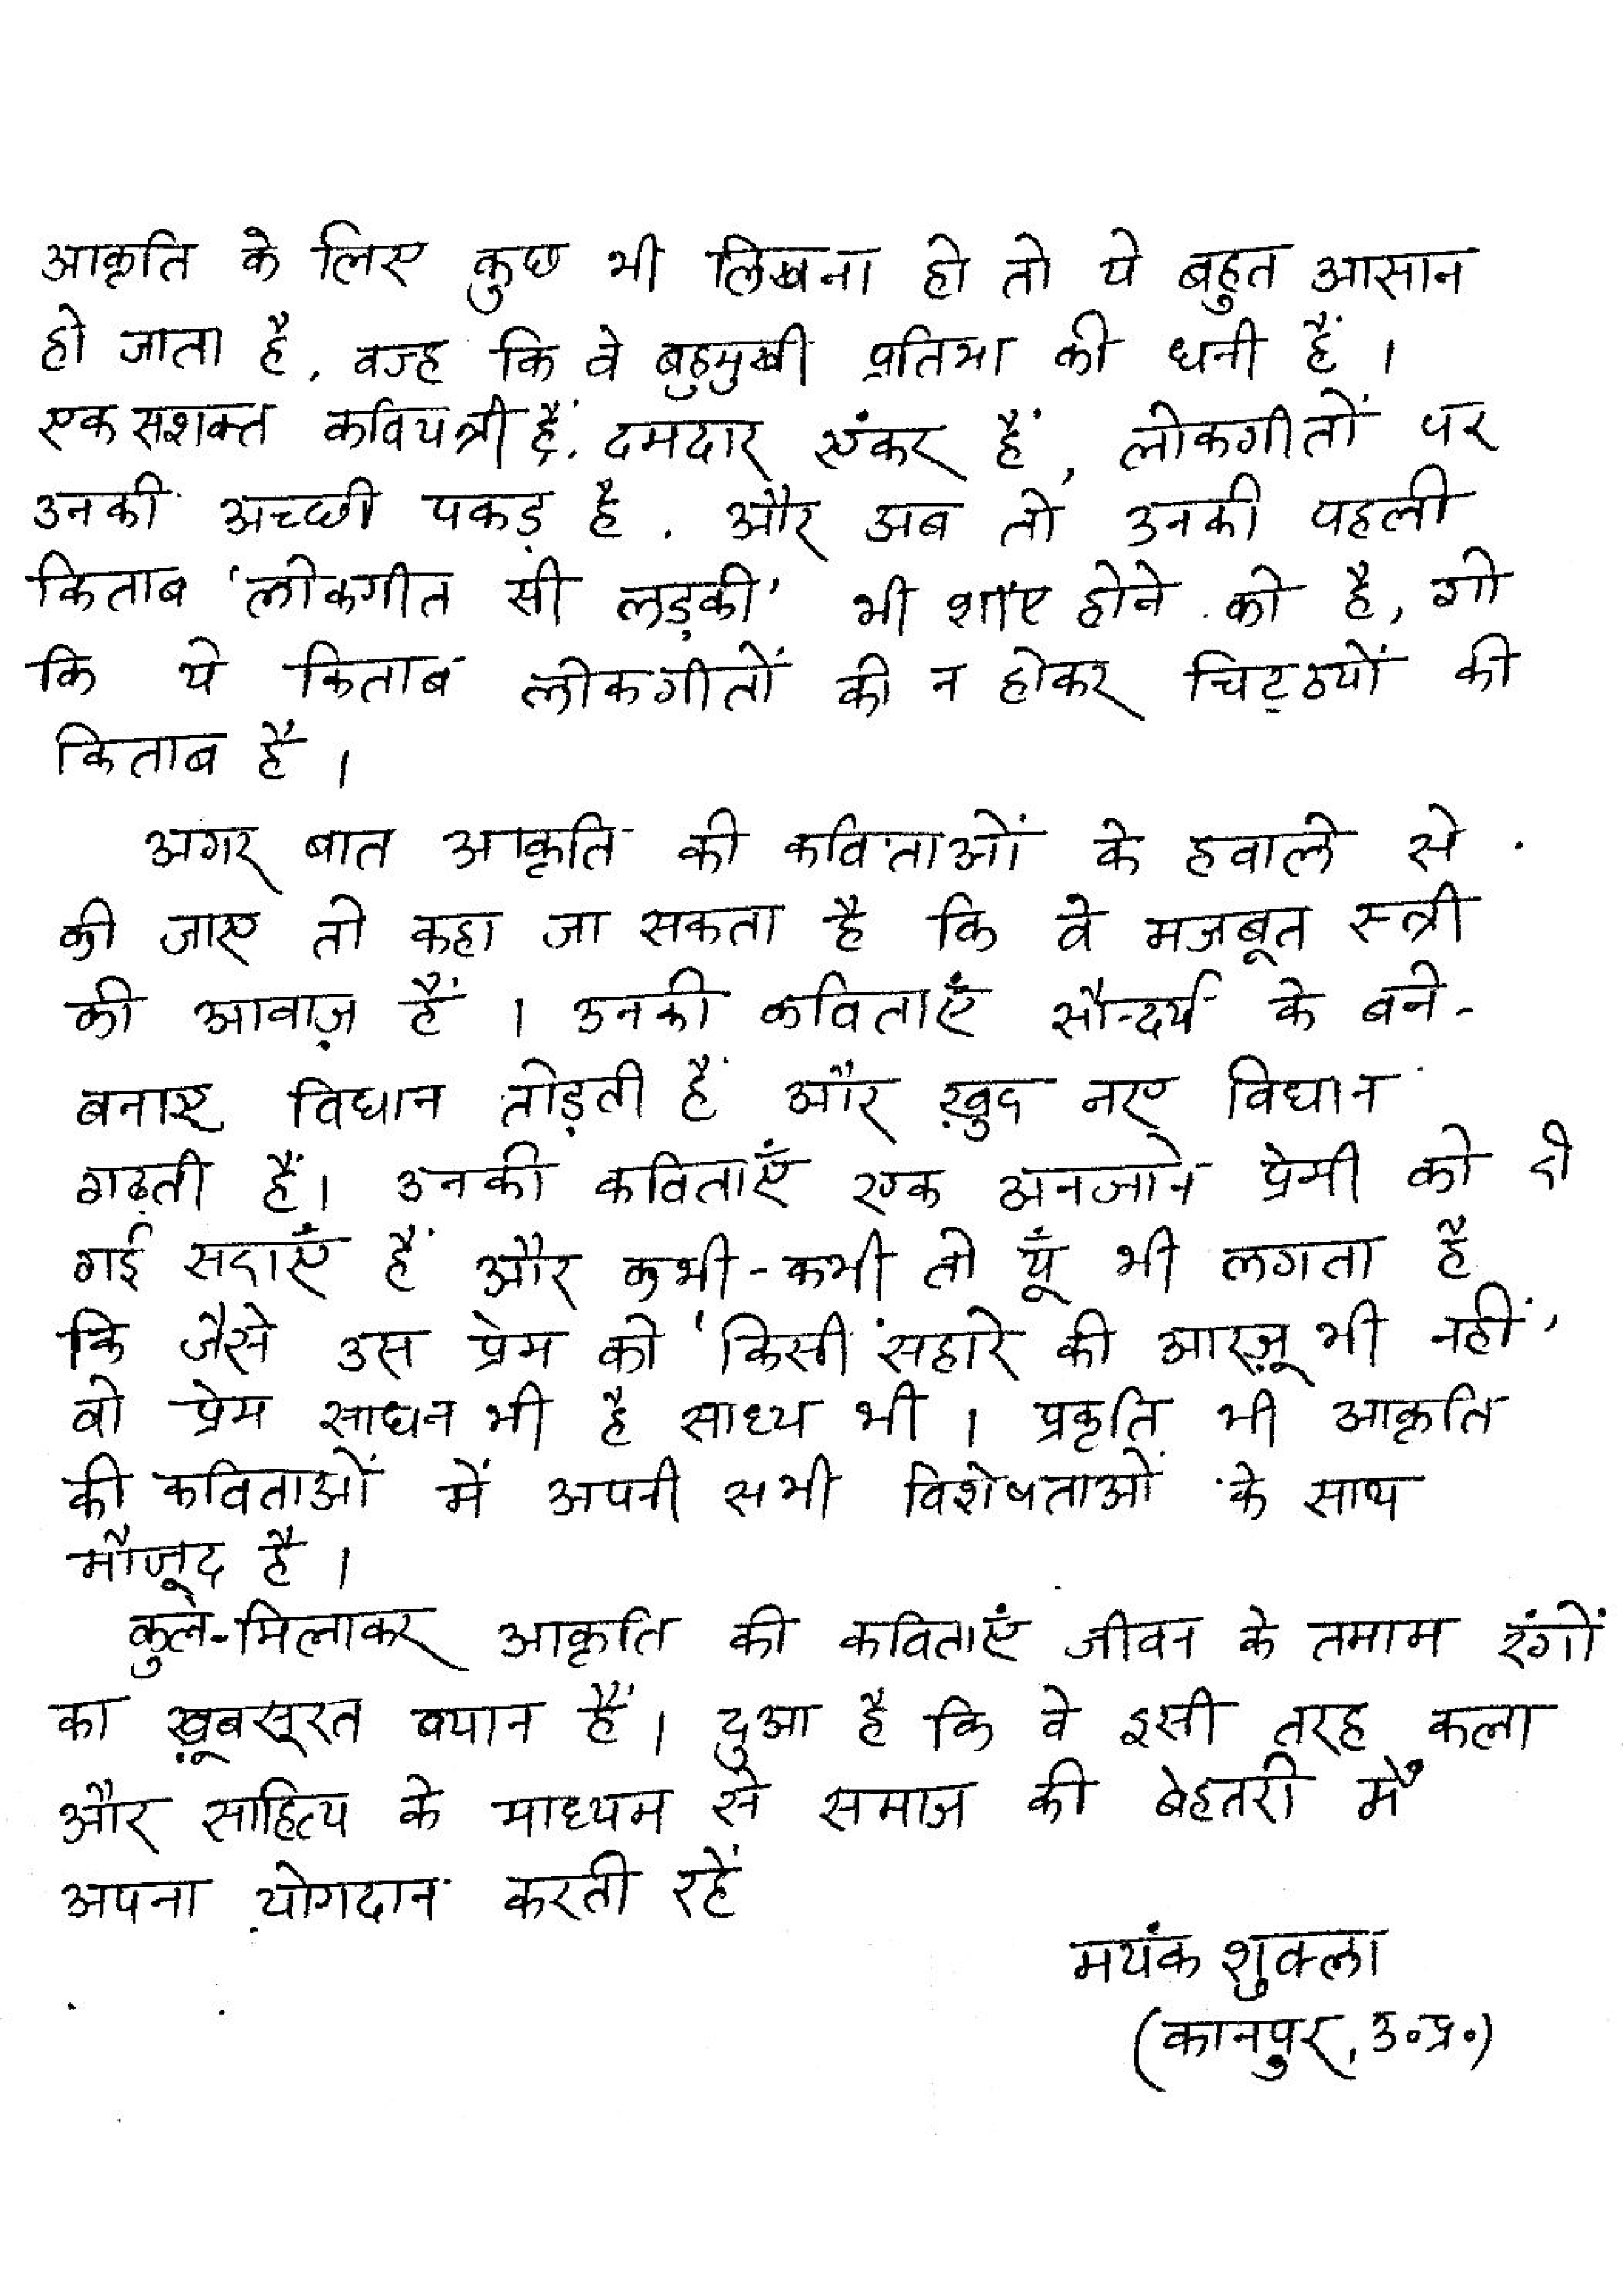 आकृति के लिए कुछ भी लिखना हो तो ये बहुत आसान
हो जाता है, वज्ह कि वे बहुमुखी प्रतिभा की धनी हैं ।
एक सशक्त कवियत्री हैं, दमदार एंकर हैं, लोकगीतों पर
उनकी अच्छी पकड़ है. और अब तो उनकी पहली
किताब 'लोकगीत सी लड़की' भी शाए होने को है, गो
कि ये किताब लोकगीतों की न होकर चिट्ठयों की
किताब है ।
अगर बात आकृति की कविताओं के हवाले से
की जाए तो कहा जा सकता है कि वे मजबूत स्त्री
की आवाज़ हैं । उनकी कविताएँ सौन्दर्य के बने-
बनाए विधान तोड़ती हैं और ख़ुद नए विधान
गढ़ती हैं। उनकी कविताएँ एक अनजाने प्रेमी को दी
गई सदाएँ हैं और कभी-कभी तो यूँ भी लगता है
कि जैसे उस प्रेम को 'किसी सहारे की आरज़ू भी नहीं'
वो प्रेम साधन भी है साध्य भी । प्रकृति भी आकृति
की कविताओं में अपनी सभी विशेषताओं के साथ
मौजूद है ।
कुल-मिलाकर आकृति की कविताएं जीवन के तमाम रंगों
का ख़ूबसूरत बयान हैं। दुआ है कि वे इसी तरह कला
और साहित्य के माध्यम से समाज की बेहतरी में
अपना योगदान करती रहें
मयंक शुक्ला
(कानपुर, उ०प्र०)